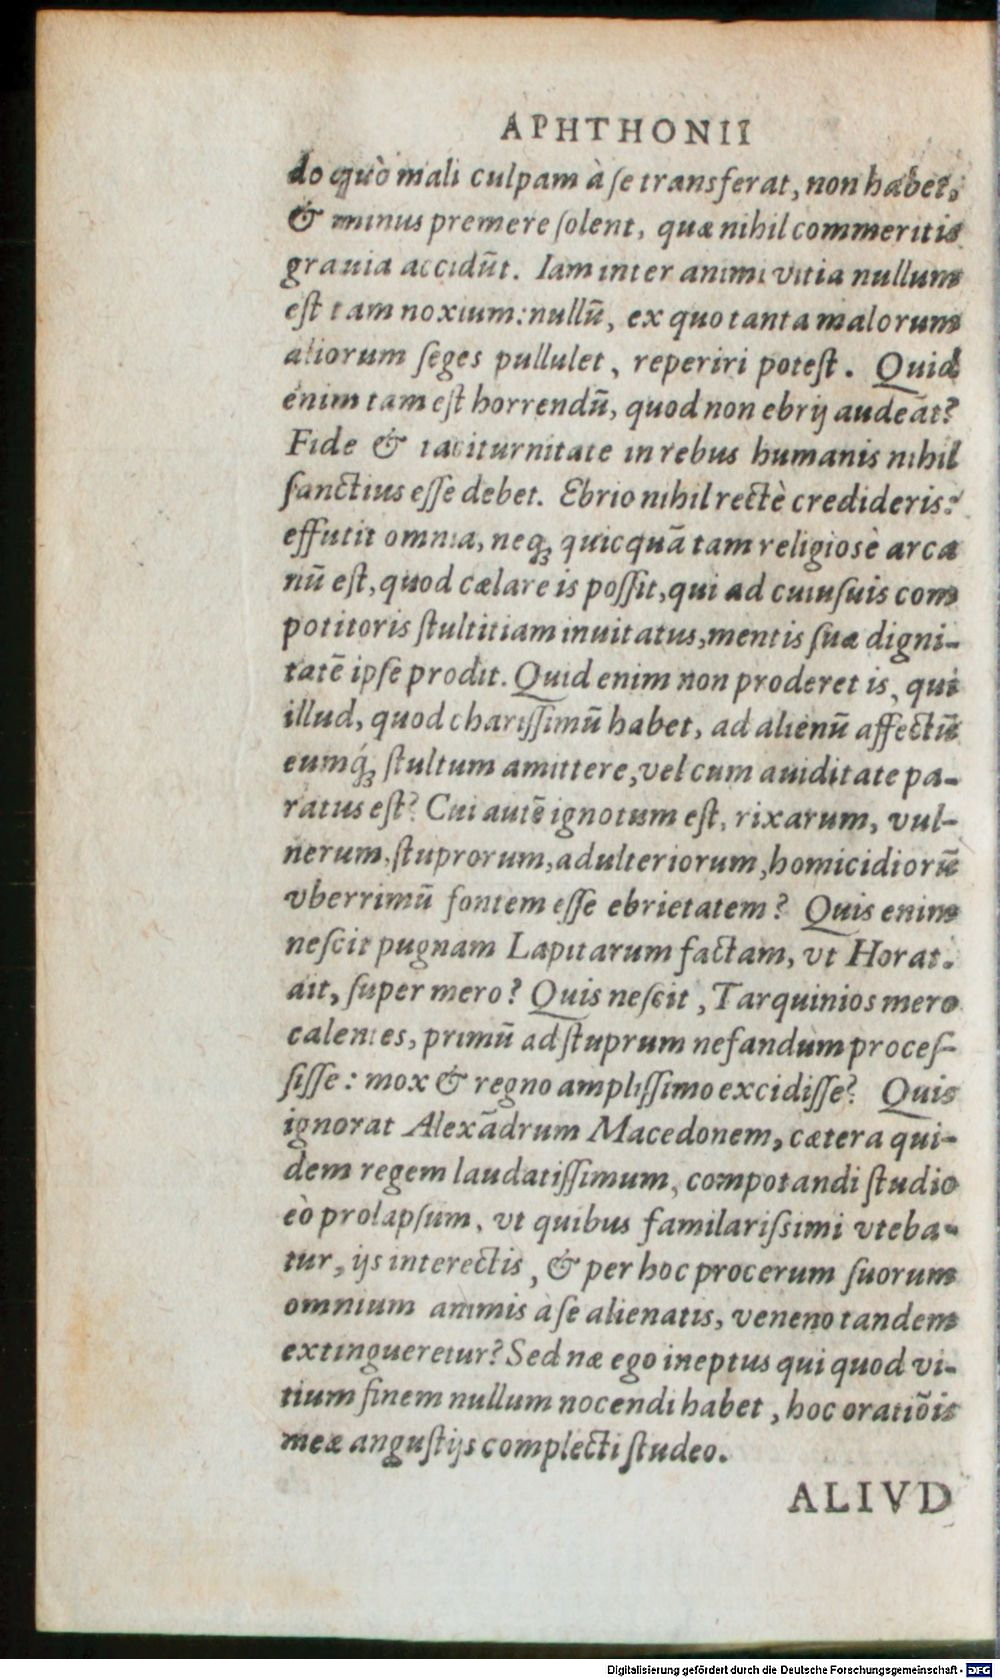 APHTHONII
do quò mali culpam à se transferat, non habet,
& minus premere solent, quæ nihil commeritis
grauia accidũt. Iam inter animi vitia nullum
est tam noxium: nullũ, ex quo tanta malorum
aliorum seges pullulet, reperiri potest. Quid
enim tam est horrendũ, quod non ebrij audeãt?
Fide & taciturnitate in rebus humanis nihil
sanctius esse debet. Ebrio nihil rectè credideris:
effutit omnia, neqꝫ quicquã tam religiosè arca
nũ est, quod cælare is possit, qui ad cuiusuis com
potitoris stultitiam inuitatus, mentis suæ digni-
tatẽ ipse prodit. Quid enim non proderet is, qui
illud, quod charissimũ habet, ad alienũ affectũ
eumq́ꝫ stultum amittere, vel cum auiditate pa-
ratus est? Cui autẽ ignotum est, rixarum, vul-
nerum, stuprorum, adulteriorum, homicidiorũ
vberrimũ fontem esse ebrietatem? Quis enim
nescit pugnam Lapitarum factam, vt Horat.
ait, super mero? Quis nescit, Tarquinios mero
calentes, primũ ad stuprum nefandum proces-
sisse: mox & regno amplissimo excidisse? Quis
ignorat Alexãdrum Macedonem, cætera qui-
dem regem laudatissimum, compotandi studio
eò prolapsum, vt quibus familarissimi vteba-
tur, ijs interectis, & per hoc procerum suorum
omnium animis à se alienatis, veneno tandem
extingueretur? Sed næ ego ineptus qui quod vi-
tium finem nullum nocendi habet, hoc oratiõis
meæ angustijs complecti studeo.
ALIVD
Digitalisierung gefördert durch die Deutsche Forschungsgemeinschaft - DFG